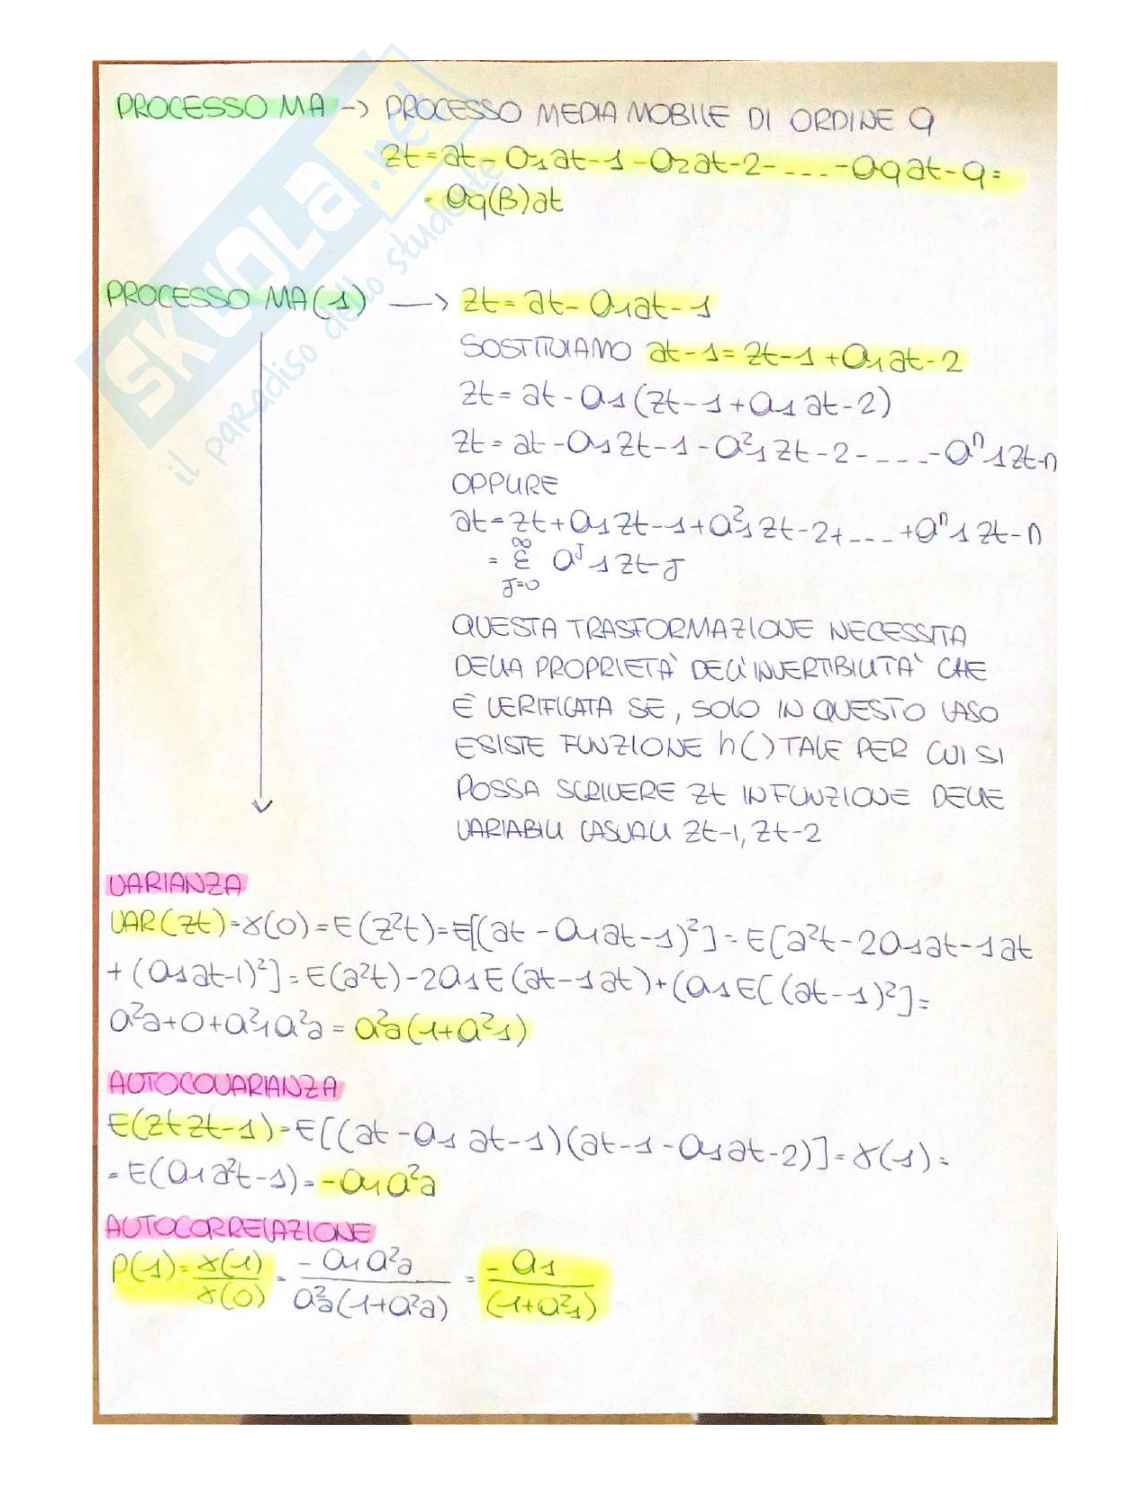 PROCESSO MA -> PROCESSO MEDIA MOBILE DI ORDINE q
zt = at - θ1at-1 - θ2at-2 - .... - θqat-q =
= θq(B)at
PROCESSO MA(1) —> zt = at - θ1at-1
SOSTITUIAMO at-1 = zt-1 + θ1at-2
zt = at - θ1(zt-1 + θ1at-2)
zt = at - θ1zt-1 - θ²1zt-2 - .... - θⁿ1zt-n
OPPURE
at = zt + θ1zt-1 + θ²1zt-2 + .... + θⁿ1zt-n
= Σ∞J=0 θᴶ1zt-J
QUESTA TRASFORMAZIONE NECESSITA
DELLA PROPRIETÀ DELL'INVERTIBILITÀ CHE
È VERIFICATA SE, SOLO IN QUESTO CASO
ESISTE FUNZIONE h() TALE PER CUI SI
POSSA SCRIVERE zt IN FUNZIONE DELLE
VARIABILI CASUALI zt-1, zt-2
VARIANZA
VAR(zt) = γ(0) = E(z²t) = E[(at - θ1at-1)²] = E[a²t - 2θ1at-1at
+ (θ1at-1)²] = E(a²t) - 2θ1E(at-1at) + (θ1E[(at-1)²] =
σ²a + 0 + θ²1σ²a = σ²a(1+θ²1)
AUTOCOVARIANZA
E(ztzt-1) = E[(at - θ1at-1)(at-1 - θ1at-2)] = γ(1) =
= E(θ1a²t-1) = -θ1σ²a
AUTOCORRELAZIONE
ρ(1) = γ(1)/γ(0) = -θ1σ²a/σ²a(1+θ²a) = -θ1/(1+θ²1)
SKUOLA.net
il paradiso dello studente